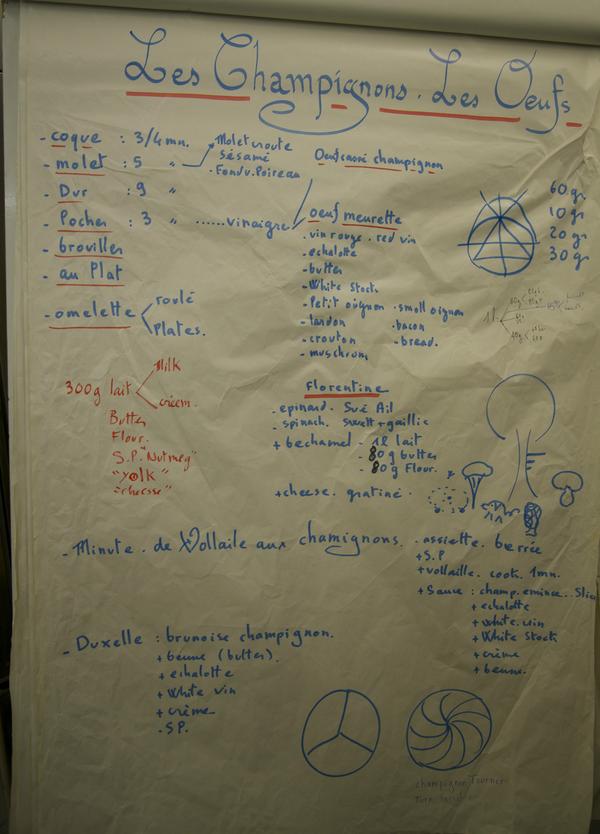 Les Champignons. Les Oeufs
- coque : 3/4 mn.
- molet : 5 "
Molet croute
sésamé
- Fondu. Poireau
- Dur : 9 "
- Pocher : 3 " ...... vinaigre
- brouiller
- au Plat
- omelette
roulé
Plates.
Oeuf cassé champignon
oeuf meurette
. vin rouge . red vin
. echalotte
. butter
. White Stock
. Petit oignon . small oignon
- lardon . bacon
. crouton - bread.
- muschrom
60 gr
10 gr
20 gr
30 gr
1l
300g lait
Milk
créem.
Butter
Flour.
S.P. "Nutmeg"
"yolk"
"cheesse"
Florentine
. epinard. Sué Ail
. spinach. swett + gaillic
+ bechamel - 1l lait
- 80g butter
- 80g Flour.
+ cheese. gratiné.
- Minute. de Vollaile aux chamignons.
. assiette. berrée
+ S.P
+ vollaille. cook. 1mn.
+ Sauce : champ. emince..
+ echalotte
+ white. vin
+ White Stock
+ crème
+ beurre.
- Duxelle : brunoise champignon.
+ beurre (butter).
+ echalotte
+ White vin
+ crème
- SP.
champignon Tourner